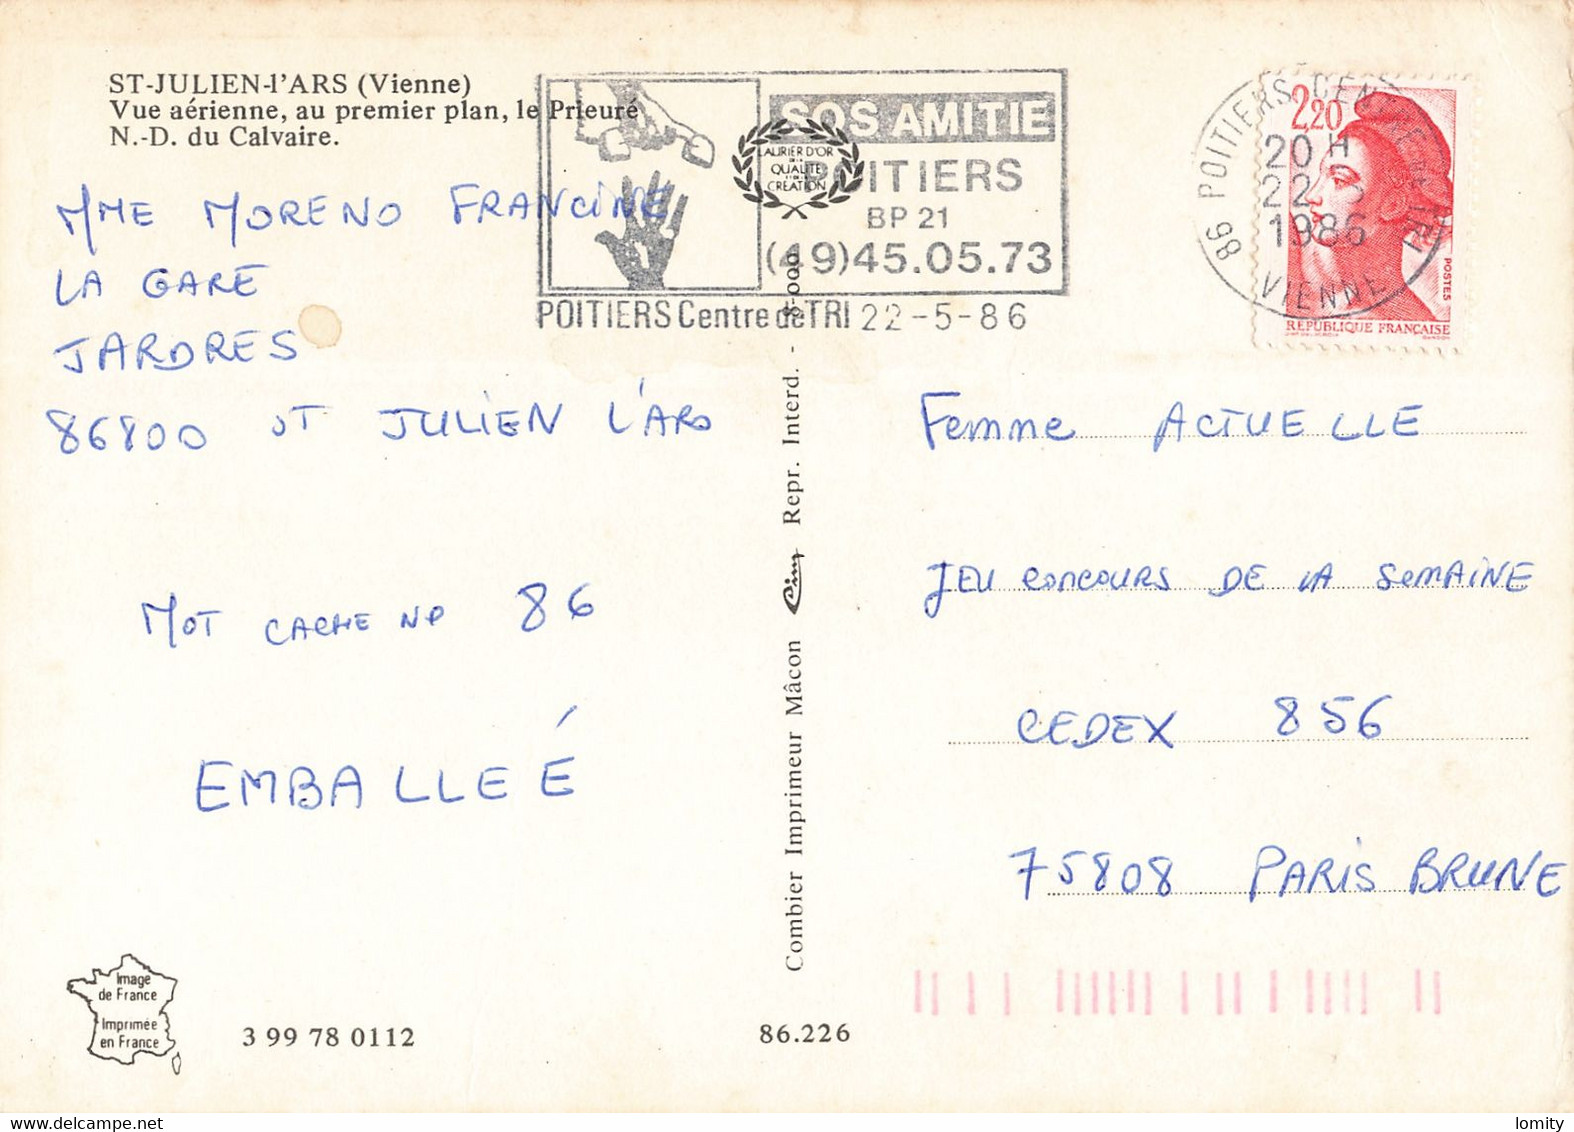 ST-JULIEN-l'ARS (Vienne)
Vue aérienne, au premier plan, le Prieuré
N.-D. du Calvaire.
MME MORENO FRANCINE
LA GARE
JARDRES
86800 ST JULIEN L'ARS
MOT CACHE No 86
EMBALLEÉ
Image
de France
Imprimée
en France
3 99 78 0112
86.226
SOS AMITIE
POITIERS
BP 21
(49)45.05.73
POITIERS Centre de TRI 22-5-86
LAURIER D'OR
DE LA
QUALITÉ
ET DE LA
CRÉATION
Combier Imprimeur Mâcon Cim Repr. Interd. - 8-000
86 POITIERS CENTRE DE TRI
20 H
22 - 5
1986
VIENNE
2,20
POSTES
REPUBLIQUE FRANÇAISE
GANDON
Femme ACTUELLE
JEU CONCOURS DE LA SEMAINE
CEDEX 856
75808 PARIS BRUNE
lomity